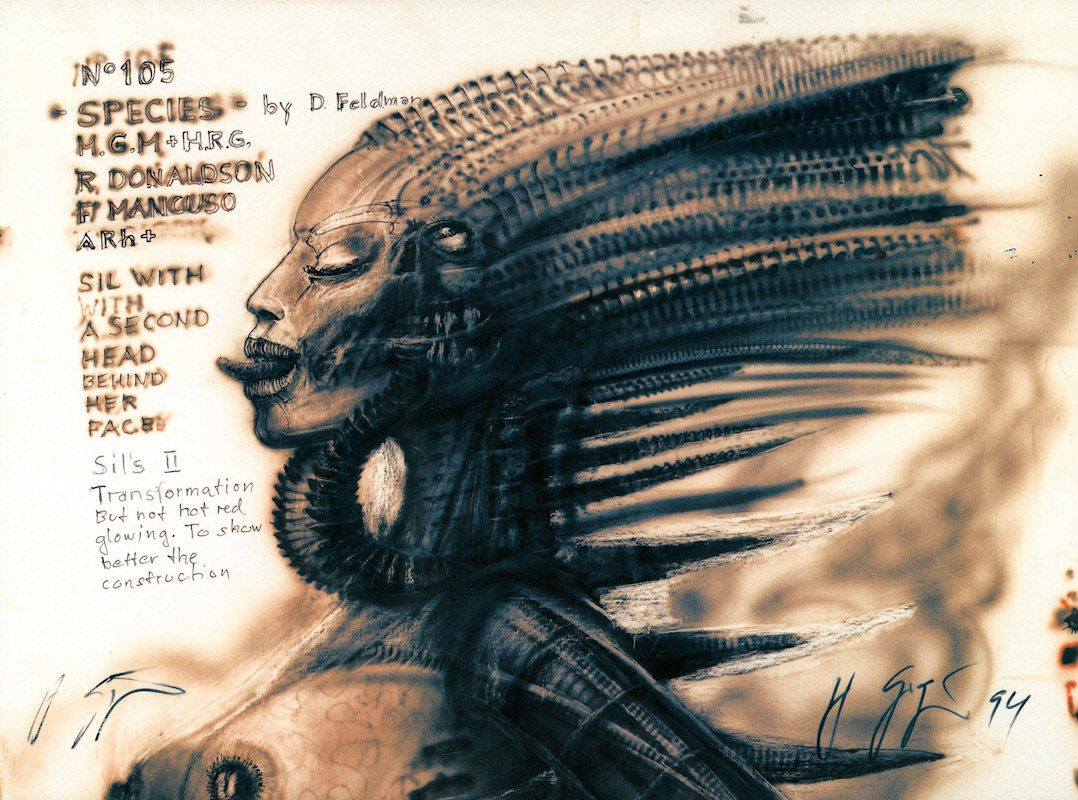 N° 105
- SPECIES - by D. Feldman
M.G.M + H.R.G.
R. DONALDSON
F. MANCUSO
ARh+
SIL WITH
WITH
A SECOND
HEAD
BEHIND
HER
FACE
Sil's II
Transformation
But not hot red
glowing. To show
better the
construction
H Giger 94